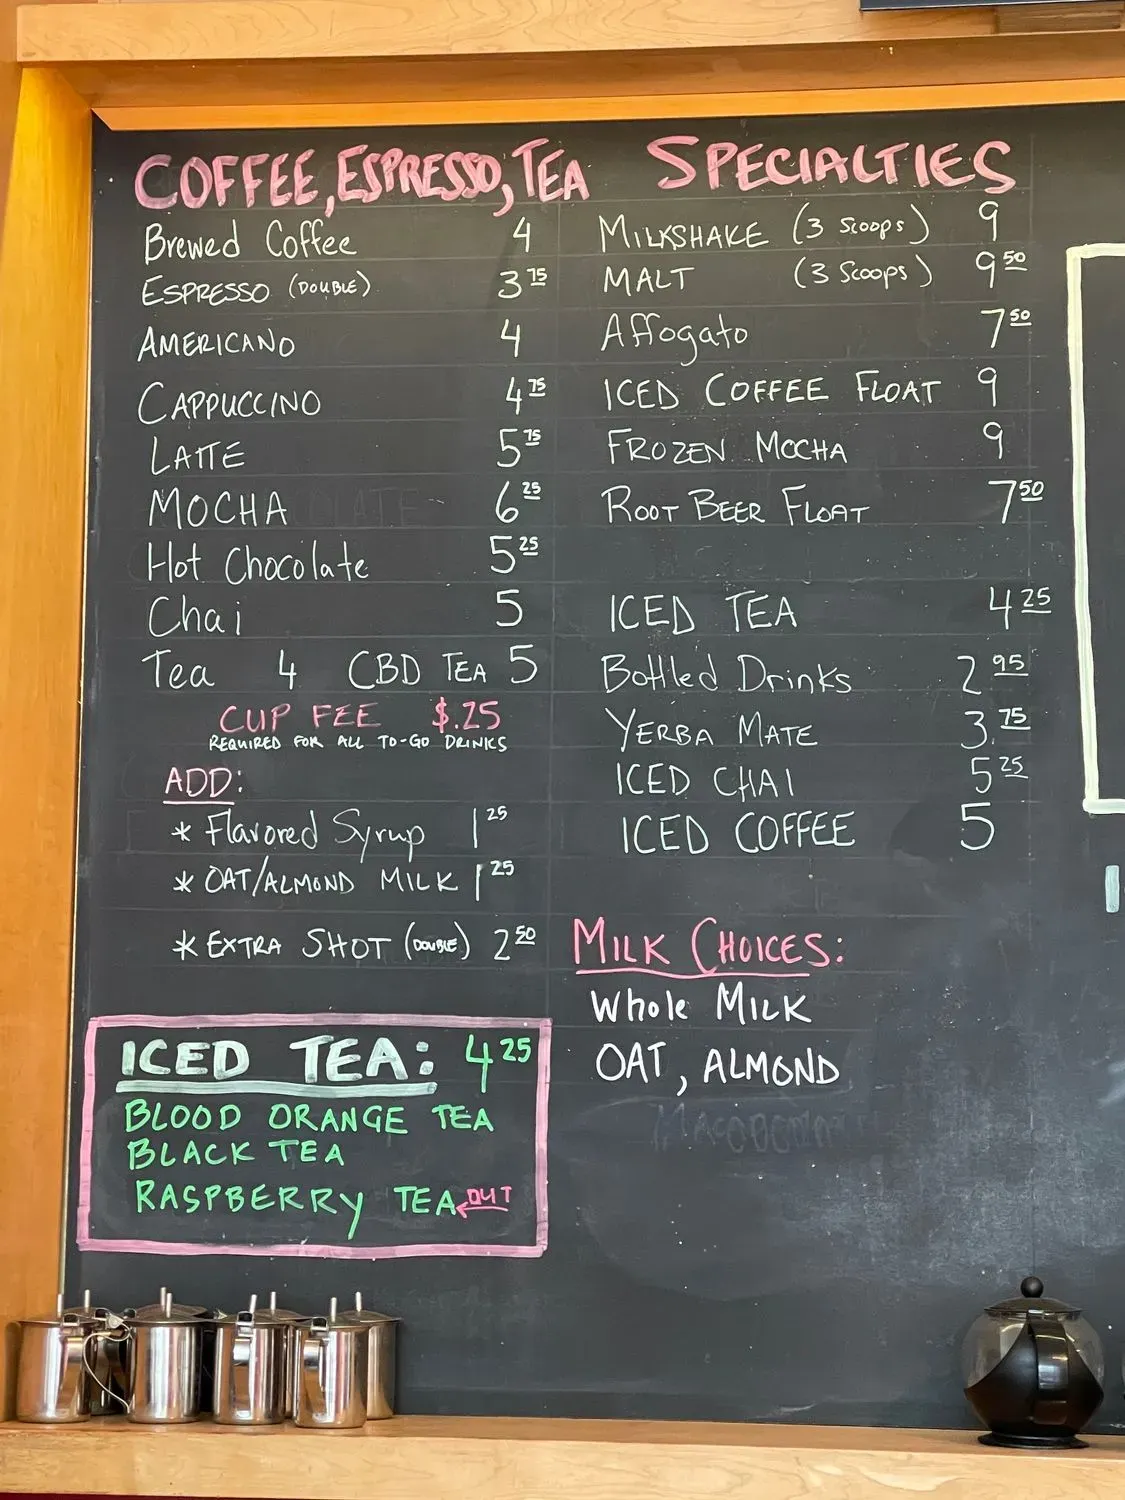 COFFEE, ESPRESSO, TEA
Brewed Coffee 4
ESPRESSO (DOUBLE) 3 75
AMERICANO 4
CAPPUCCINO 4 75
LATTE 5 75
MOCHA 6 25
Hot Chocolate 5 25
Chai 5
Tea 4 CBD TEA 5
CUP FEE $.25
REQUIRED FOR ALL TO-GO DRINKS
ADD:
* Flavored Syrup 1 25
* OAT/ALMOND MILK 1 25
* EXTRA SHOT (DOUBLE) 2 50
ICED TEA: 4 25
BLOOD ORANGE TEA
BLACK TEA
RASPBERRY TEA ← OUT
SPECIALTIES
MILKSHAKE (3 Scoops) 9
MALT (3 Scoops) 9 50
Affogato 7 50
ICED COFFEE FLOAT 9
FROZEN MOCHA 9
ROOT BEER FLOAT 7 50
ICED TEA 4 25
Bottled Drinks 2 95
YERBA MATE 3.75
ICED CHAI 5 25
ICED COFFEE 5
MILK CHOICES:
Whole MILK
OAT, ALMOND